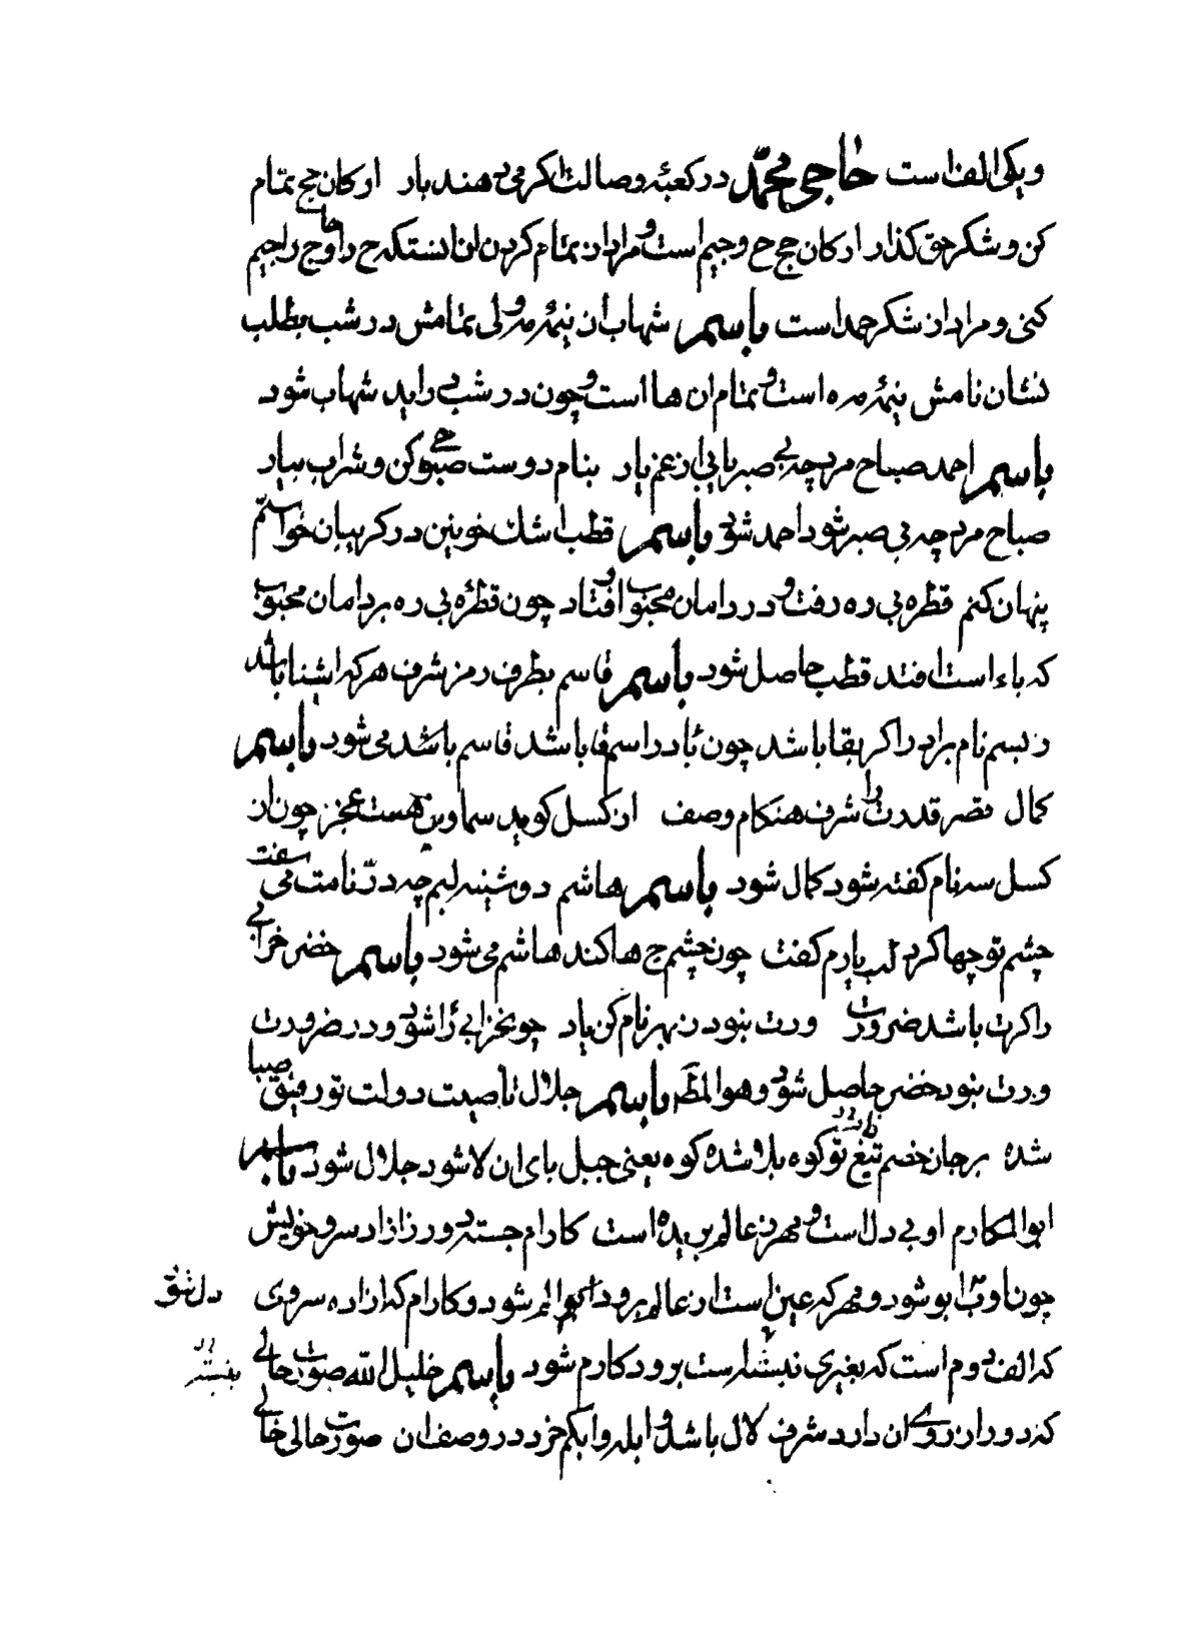 و یکی الف است حاجی محمّد در کعبهٔ وصالت اکر می دهند بار ارکان حج تمام
کن و شکر حق کذار ارکان حج ح و جیم است و مراد از تمام کردن ان انستکه ح را حا و ج را جیم
کنی و مراد از شکر حمد است باسم شهاب ان نیمهٔ مه ولی تمامش در شب بطلب
نشان نامش نیمهٔ مه ه است و تمام ان ها است و چون در شب بی راید شهاب شود
باسم احمد صباح مرد چه بی صبر یابی از غم یار بنام دوست صبوحی کن و شراب بیار
صباح مرد چه بی صبر شود احمد شود باسم قطب اشك خونین در کریبان خواستم
پنهان کنم قطره بی ره رفت و در دامان محبوب اوفتاد چون قطره بی ره بر دامان محبوب
که باء است افتد قطب حاصل شود باسم قاسم بطرف رمز شرف هر که اشنا باشد
ز بسم نام براد را کر بقا باشد چون با در اسم قا باشد قاسم باشد می شود باسم
کمال مقصر قدرت را شرف هنکام وصف ان کسل کوید سما وین هست عجز چون از
کسل سه نام کفته شود کمال شود باسم هاشم دوشینه لبم چه درّ نامت می سفت
چشم تو چها کرد لب یارم کفت چون چشم ج ها کند هاشم می شود باسم خضر خرابی
را کرت باشد ضرورت ورت نبود ز بهر نام کن یاد چو بخرابی را شود و در ضرورت
ورت نبود خضر حاصل شود و هو المظهر باسم جلال تا صیت دولت تو رفیق صبا
شده بر جان خصم تیغ تو کوه بلا شده کوه یعنی جبل بای ان لا شود جلال شود باسم
ابو المکارم او بی دل است و مهر ز عالم بریده است کارام جسته دور ز ازاد سرو خویش
چون او بّ ابو شود و مهر که عین است از عالم برود ابو الم شود و کارام که ازاده سروی
دل شود
که الف دوم است که بغیری نبشد است برود کارم شود باسم خلیل الله صورت حالی
که دوران روی ان دارد شرف لال باشد و ابله و ابکم خرد در وصف ان صورت حالی خالی